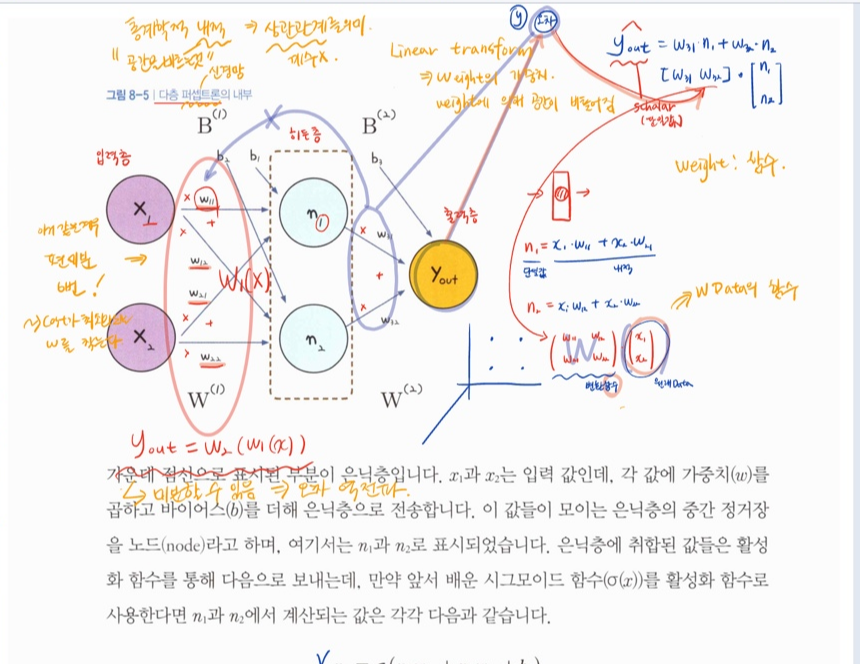 통계학적 내적 ⇒ 상관관계를 의미.
" 공간을 바르는것" 계수X.
신경망
그림 8-5 | 다층 퍼셉트론의 내부
Linear transform
⇒ weight의 가중치.
weight에 의해 공간이 비틀어짐
y 오차
ŷout = w31·n1 + w32·n2
[w31 w32] • [n1 n2]
scholar
(단일값)
weight : 함수.
B(1)
B(2)
입력층
히든층
출력층
b2
b1
b3
X1
w11
n1
w12
w21
W1(X)
X2
w22
n2
w31
w32
Yout
W(1)
W(2)
n1 = x1·w11 + x2·w21
단일값 내적
n2 = x1·w12 + x2·w22
⇒ W Data의 함수
W
x1
x2
변환함수
원래Data
yout = w2 (w1(x))
↳ 미분할 수 있음 ⇒ 오차 역전파.
가운데 점선으로 표시된 부분이 은닉층입니다. x1과 x2는 입력 값인데, 각 값에 가중치(w)를
곱하고 바이어스(b)를 더해 은닉층으로 전송합니다. 이 값들이 모이는 은닉층의 중간 정거장
을 노드(node)라고 하며, 여기서는 n1과 n2로 표시되었습니다. 은닉층에 취합된 값들은 활성
화 함수를 통해 다음으로 보내는데, 만약 앞서 배운 시그모이드 함수(σ(x))를 활성화 함수로
사용한다면 n1과 n2에서 계산되는 값은 각각 다음과 같습니다.